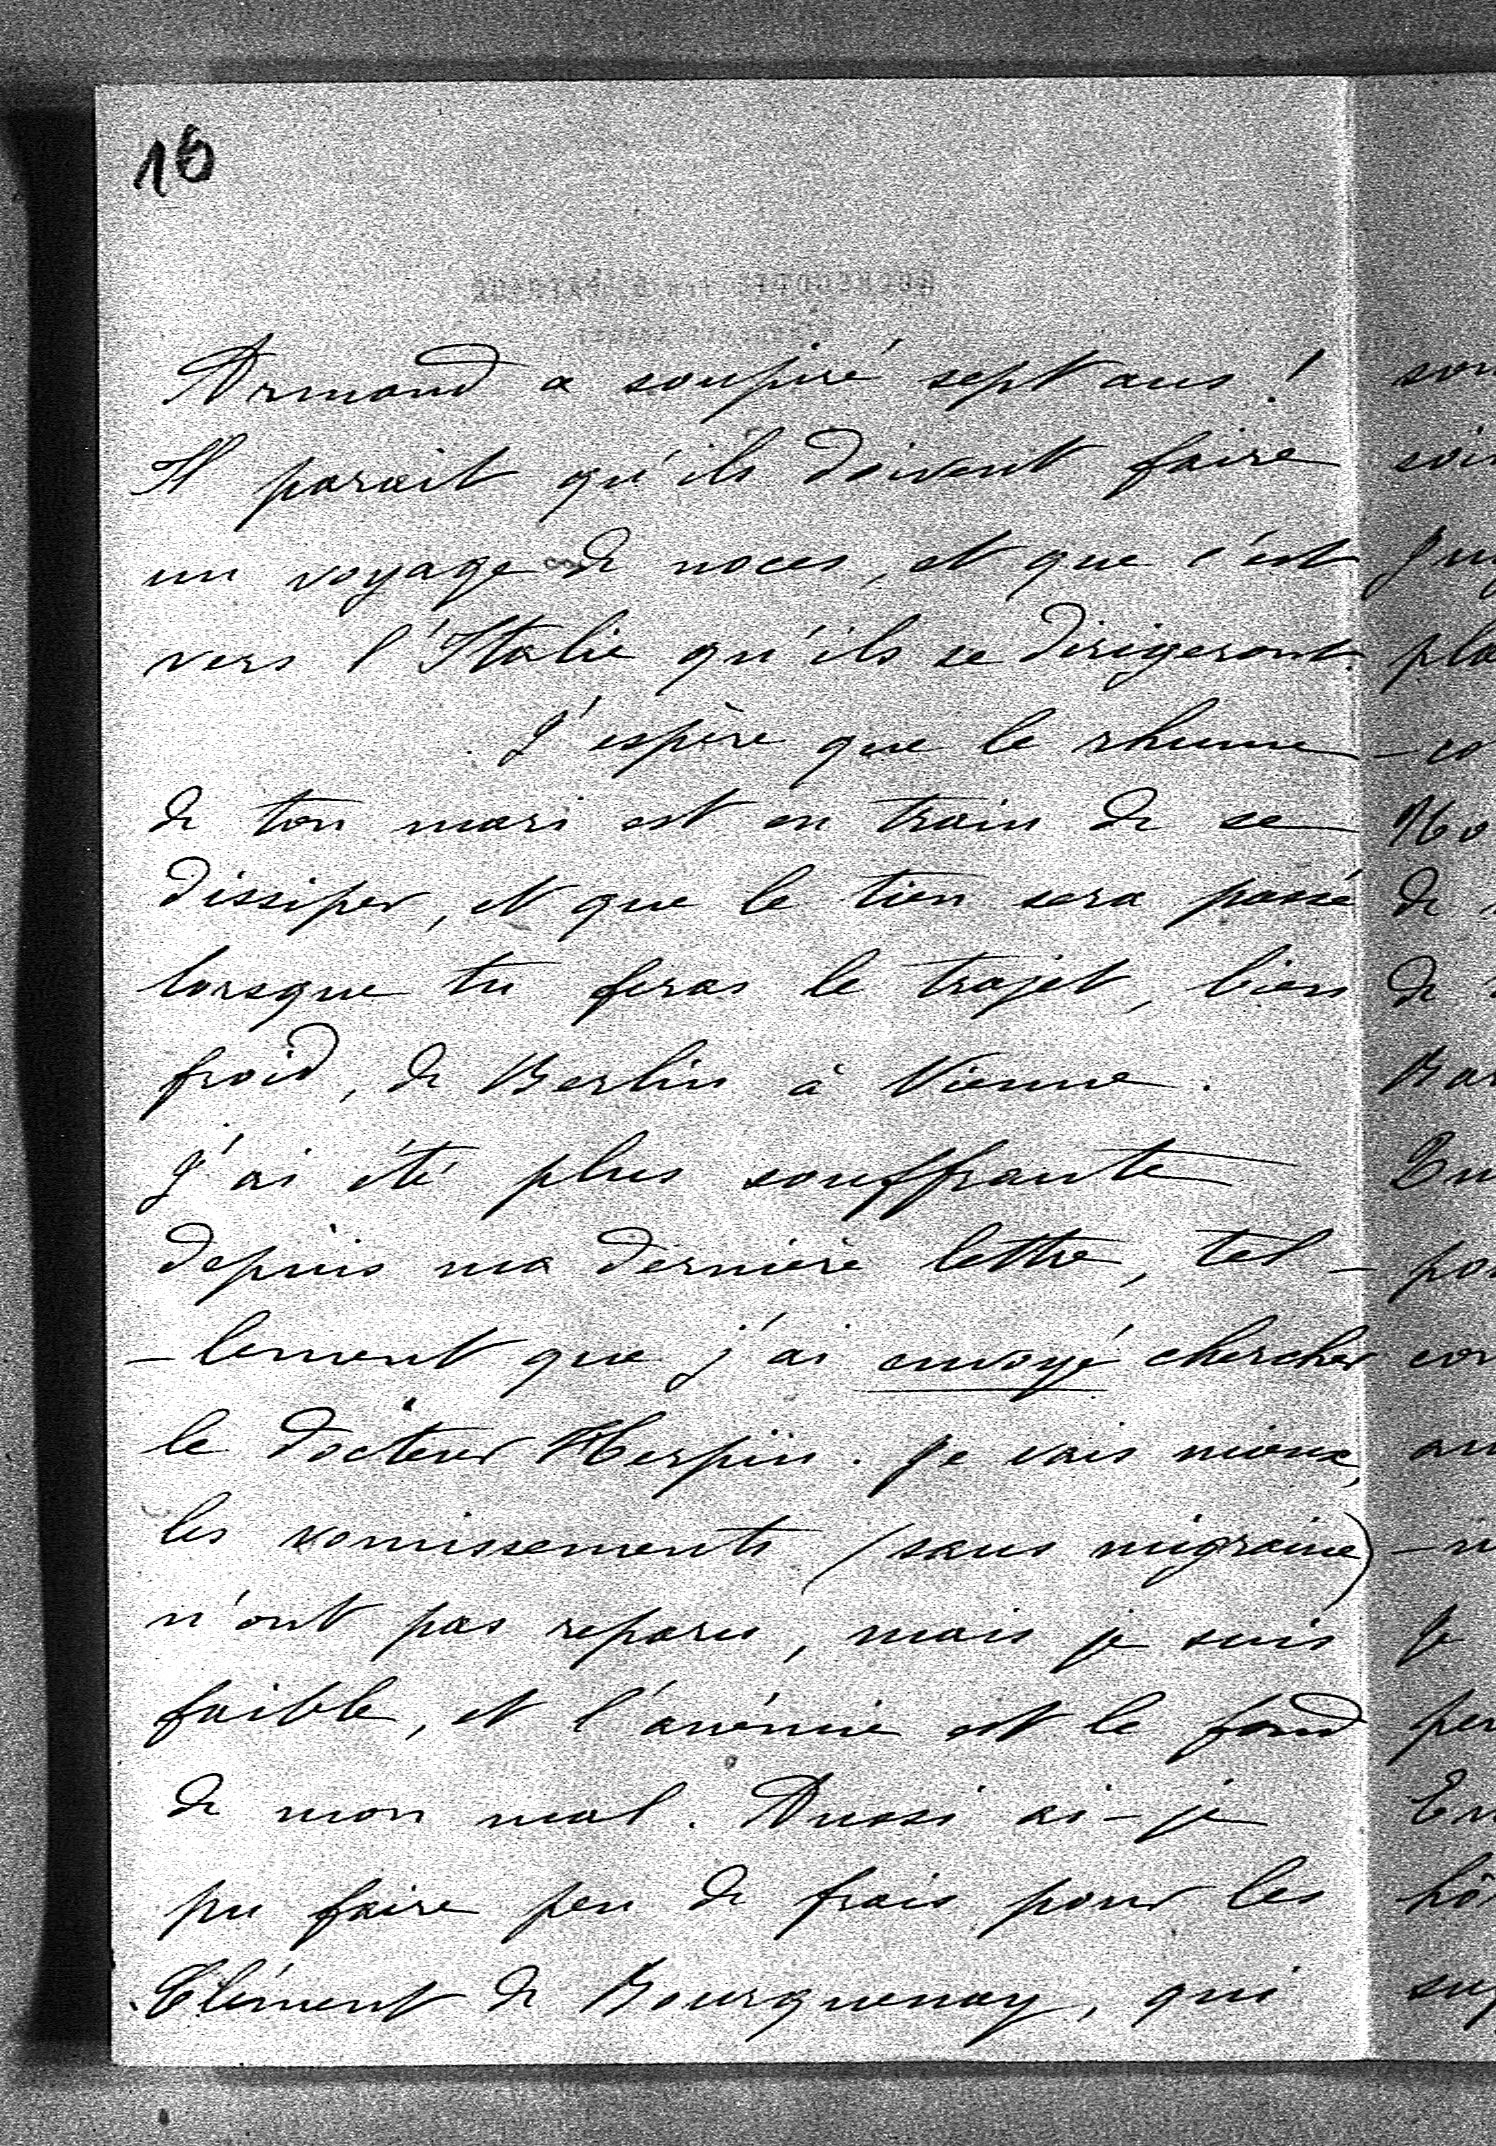 16
Armand a soupiré sept ans !
Il parait qu'ils doivent faire
un voyage de noces, et que c'est
vers l'Italie qu'ils se dirigeront.
J'espère que le rhume
de ton mari est en train de se
dissiper, et que le tien sera passé
lorsque tu feras le trajet, bien
froid, de Berlin à Vienne.
J'ai été plus souffrante
depuis ma dernière lettre, tel-
-lement que j'ai envoyé chercher
le docteur Herpin. Je vais mieux,
les vomissements (sans migraine)
n'ont pas reparu, mais je suis
faible, et l'anémie est le fond
de mon mal. Aussi ai-je
pu faire peu de frais pour les
Clément de Bourgueney, qui